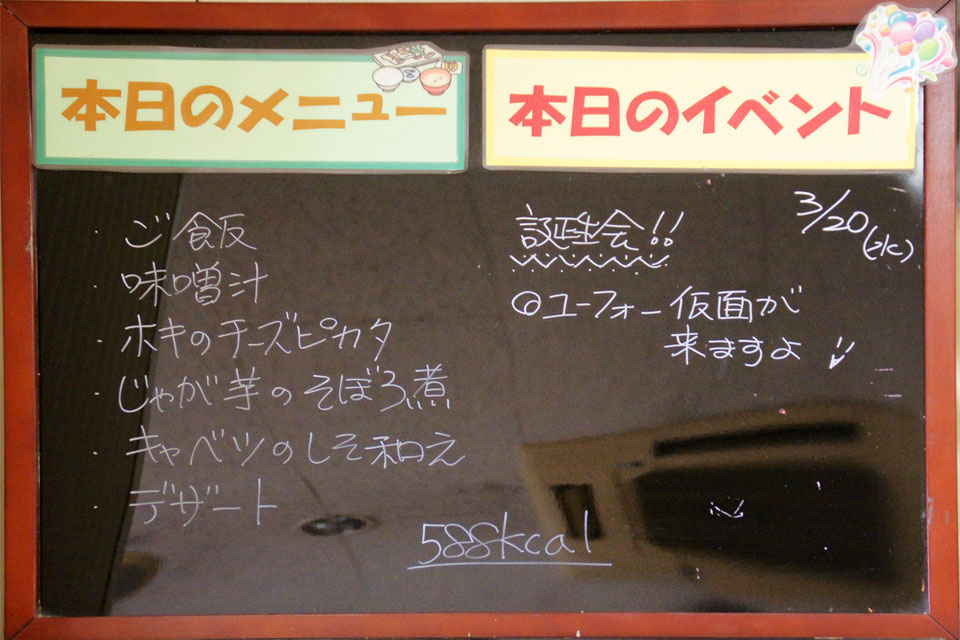 本日のメニュー
・ご飯
・味噌汁
・ホキのチーズピカタ
・じゃが芋のそぼろ煮
・キャベツのしそ和え
・デザート
588kcal
本日のイベント
3/20(水)
誕生会!!
◎ユーフォー仮面が
来ますよ!!